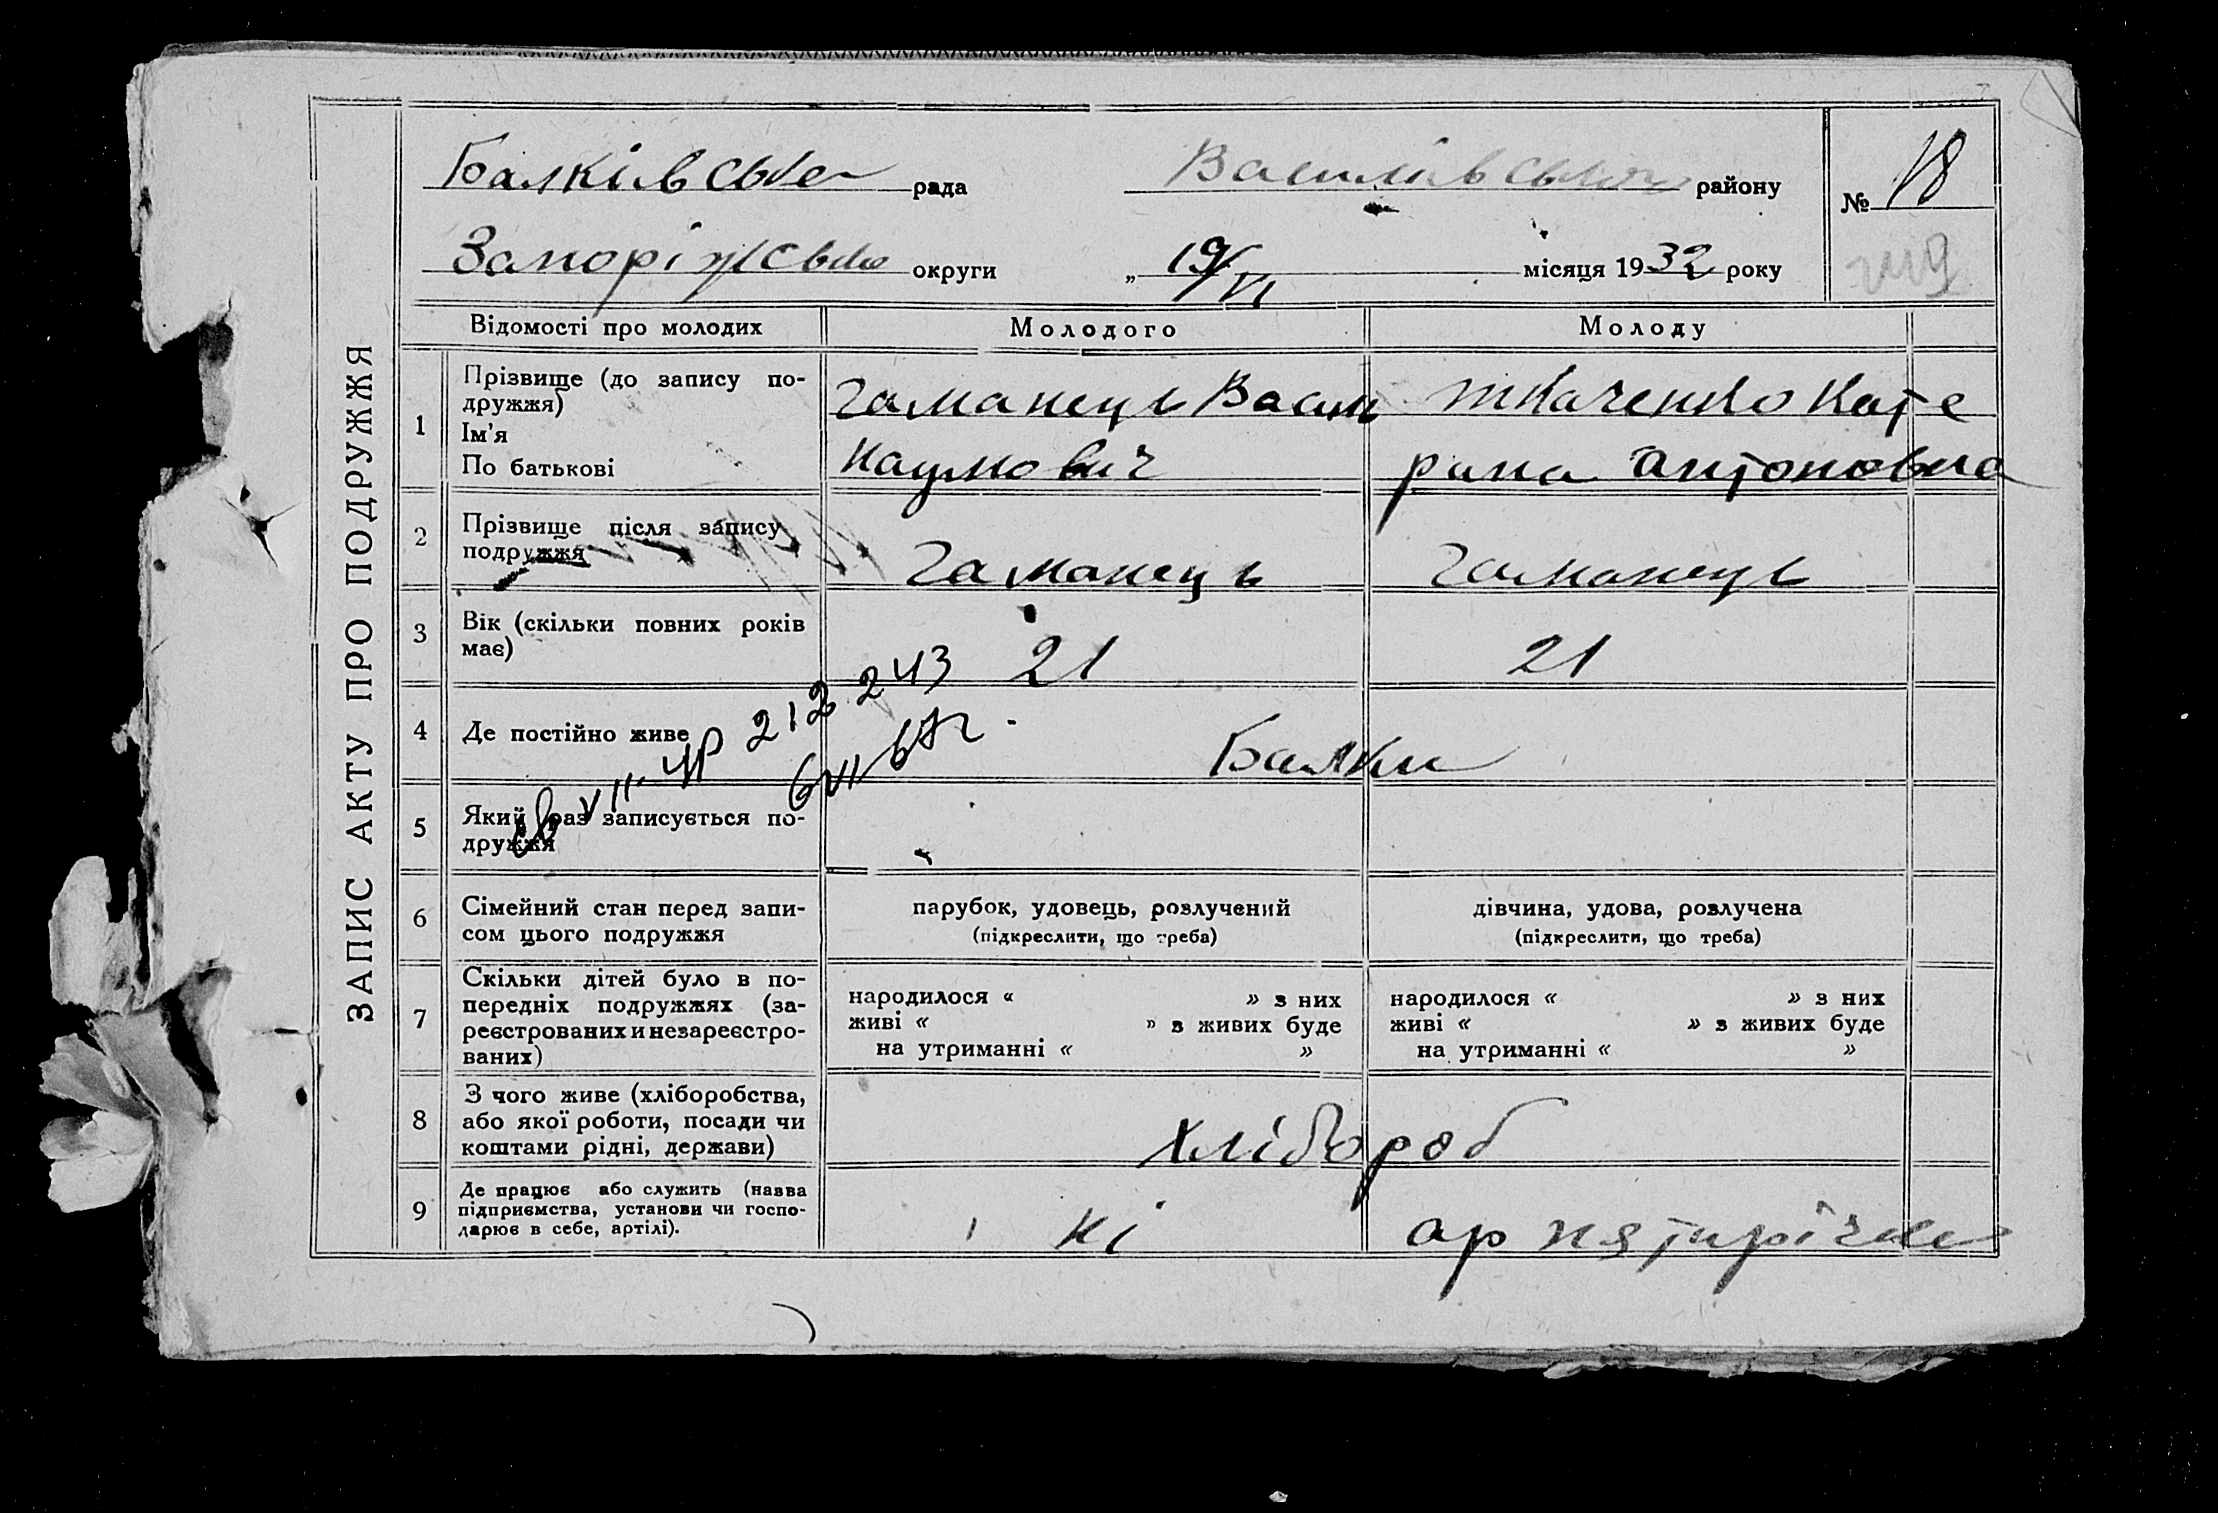 Балківська рада Василівського району № 18
Запоріжська округи „ 19/VI місяця 1932 року
ЗАПИС АКТУ ПРО ПОДРУЖЖЯ
Відомості про молодих Молодого Молоду
1 Прізвище (до запису по-
дружжя)
Ім'я
По батькові
Гаманець Василь
Наумович
Ткаченко Кате
рина Антоновна
2 Прізвище після запису
подружжя
Гаманець Гаманець
3 Вік (скільки повних років
має)
21 21
4 Де постійно живе
Балки
св VII-ЧР 212243
6 VII 67 г.
5 Який раз записується по-
дружжя
6 Сімейний стан перед запи-
сом цього подружжя
парубок, удовець, розлучений
(підкреслити, що треба)
дівчина, удова, розлучена
(підкреслити, що треба)
7 Скільки дітей було в по-
передніх подружжях (за-
реєстрованих и незареєстро-
ваних)
народилося « » з них
живі « » з живих буде
на утриманні « »
народилося « » з них
живі « » з живих буде
на утриманні « »
8 З чого живе (хліборобства,
або якої роботи, посади чи
коштами рідні, держави)
Хлібороб
9 Де працює або служить (назва
підприємства, установи чи госпо-
дарює в себе, артілі).
ні ар пятирічка